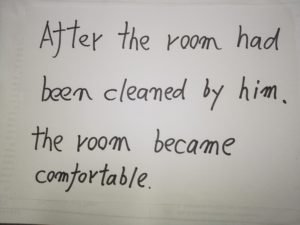 After the room had
been cleaned by him.
the room became
comfortable.